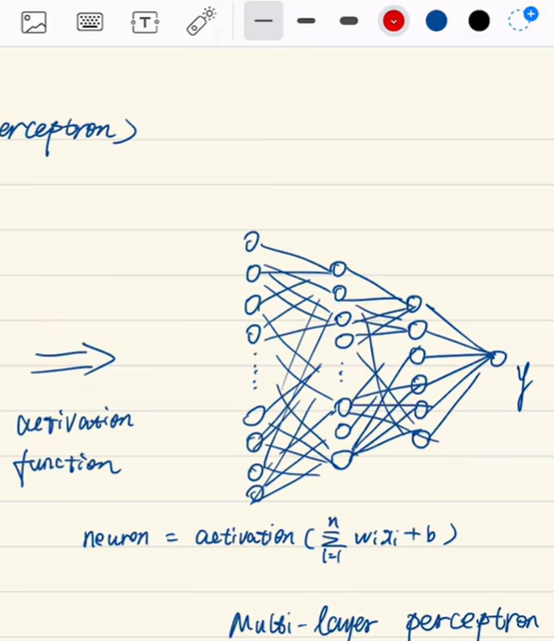 erceptron)
y
activation
function
neuron = activation ( n∑i=1 wixi + b )
Multi-layer perceptron